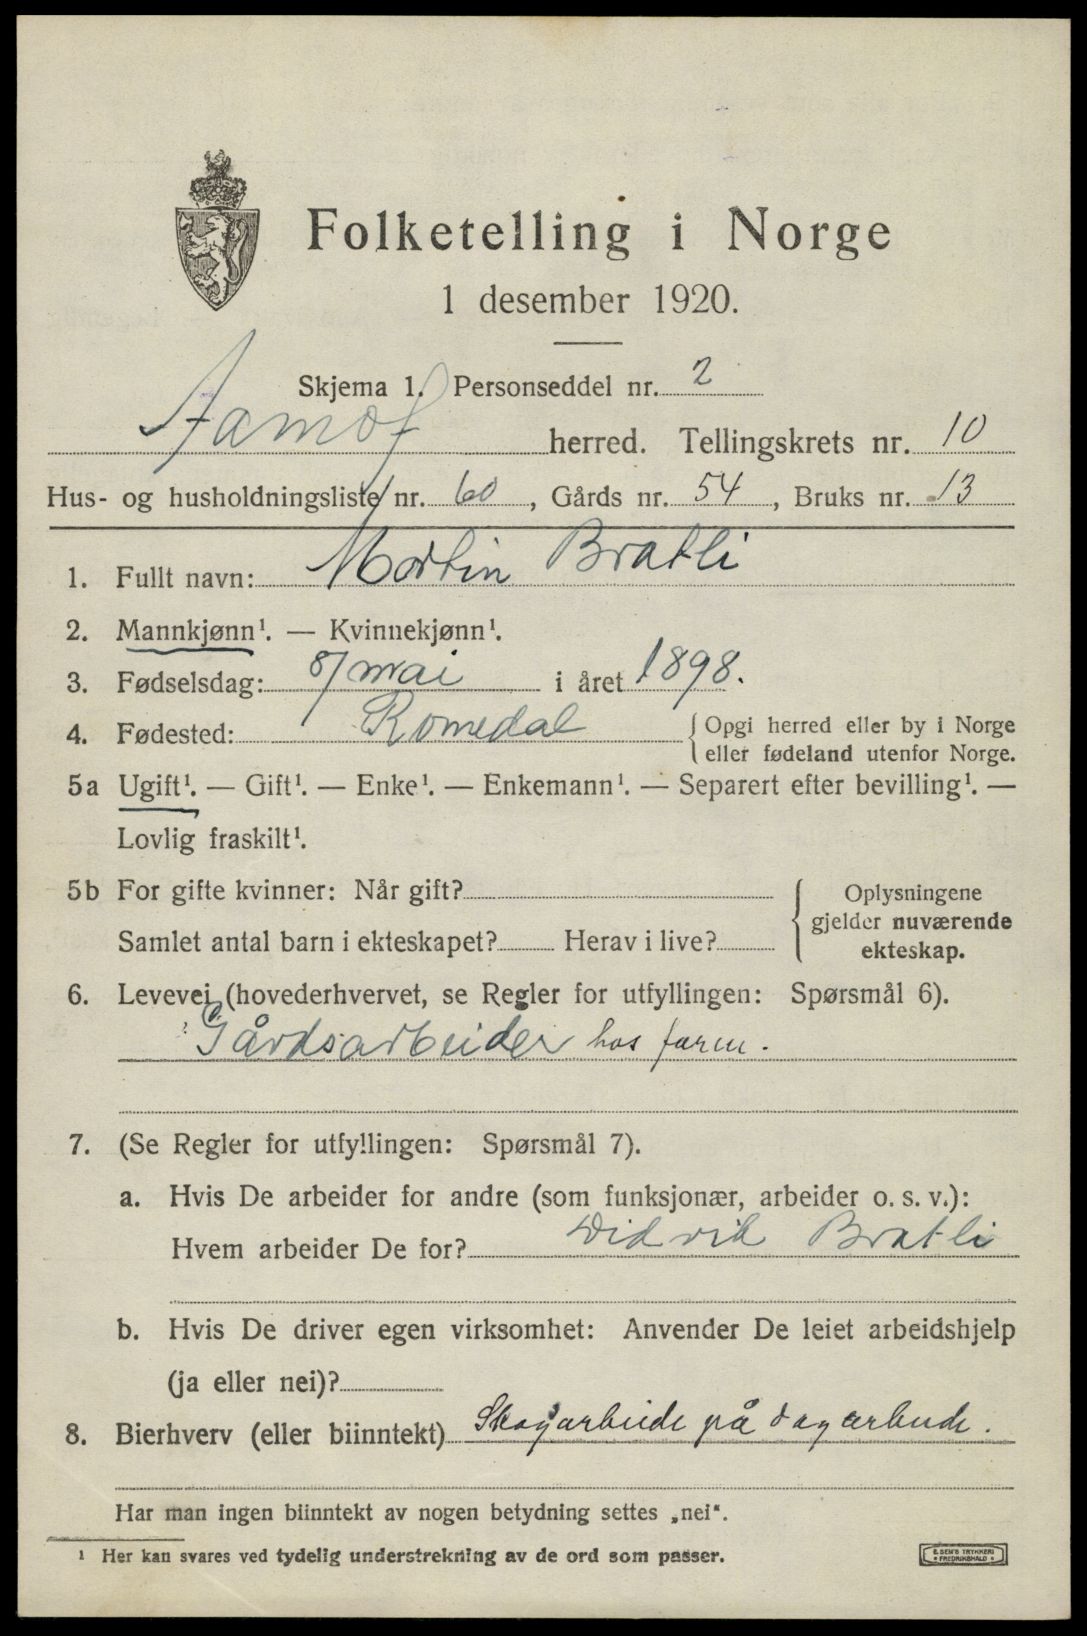 Folketelling i Norge
1 desember 1920.
Skjema 1. Personseddel nr. 2
Aamot herred. Tellingskrets nr. 10
Hus- og husholdningsliste nr. 60, Gårds nr. 54, Bruks nr. 13
1. Fullt navn: Martin Bratli
2. Mannkjønn¹. — Kvinnekjønn¹.
3. Fødselsdag: 8/ mai i året 1898.
4. Fødested: Romedal { Opgi herred eller by i Norge
eller fødeland utenfor Norge.
5a Ugift¹. — Gift¹. — Enke¹. — Enkemann¹. — Separert efter bevilling¹. —
Lovlig fraskilt¹.
5b For gifte kvinner: Når gift?
Samlet antal barn i ekteskapet? Herav i live?
{ Oplysningene
gjelder nuværende
ekteskap.
6. Levevei (hovederhvervet, se Regler for utfyllingen: Spørsmål 6).
Gårdsarbeider hos faren.
7. (Se Regler for utfyllingen: Spørsmål 7).
a. Hvis De arbeider for andre (som funksjonær, arbeider o. s. v.):
Hvem arbeider De for? Didrik Bratli
b. Hvis De driver egen virksomhet: Anvender De leiet arbeidshjelp
(ja eller nei)?
8. Bierhverv (eller biinntekt) Skogarbeide på dagarbeide.
Har man ingen biinntekt av nogen betydning settes „nei“.
¹ Her kan svares ved tydelig understrekning av de ord som passer.
E. SEM'S TRYKKERI
• FREDRIKSHALD •